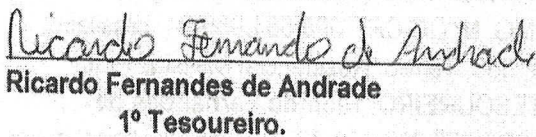 Ricardo Fernando de Andrade
Ricardo Fernandes de Andrade
1º Tesoureiro.